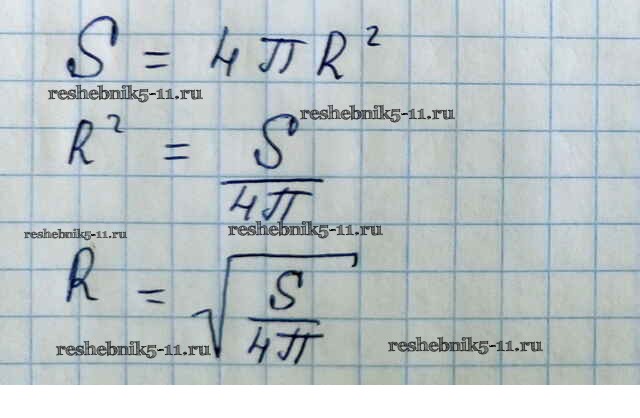 S = 4πR²
reshebnik5-11.ru
reshebnik5-11.ru
R² = S/4π
reshebnik5-11.ru
reshebnik5-11.ru
R = √(S/4π)
reshebnik5-11.ru
reshebnik5-11.ru